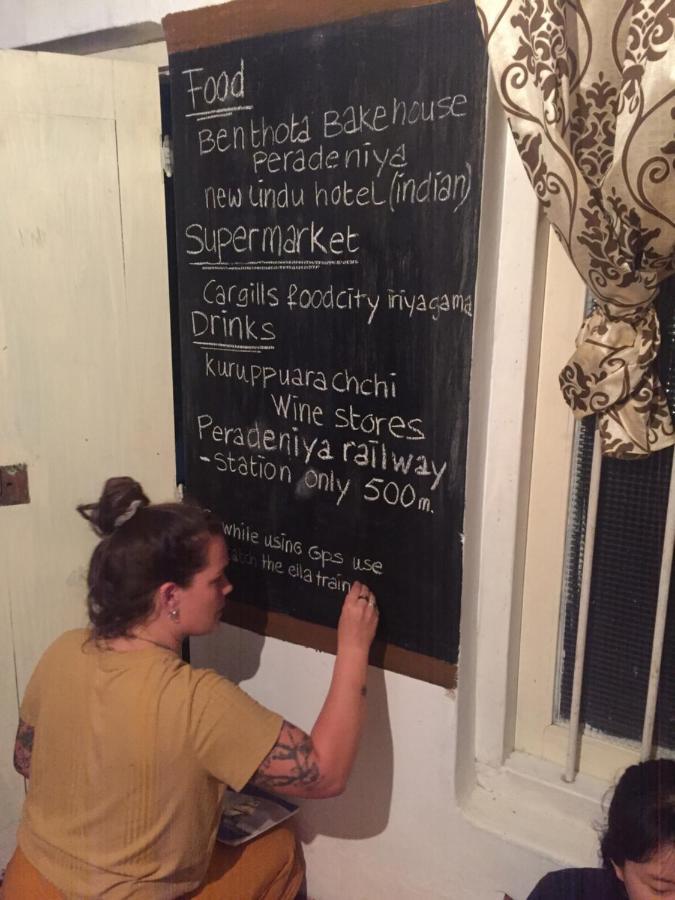 Food
Benthota Bakehouse
Peradeniya
new lindu hotel (indian)
Supermarket
Cargills foodcity iriyagama
Drinks
kuruppuarachchi
Wine stores
Peradeniya railway
-station only 500m.
while using Gps use
catch the ella train